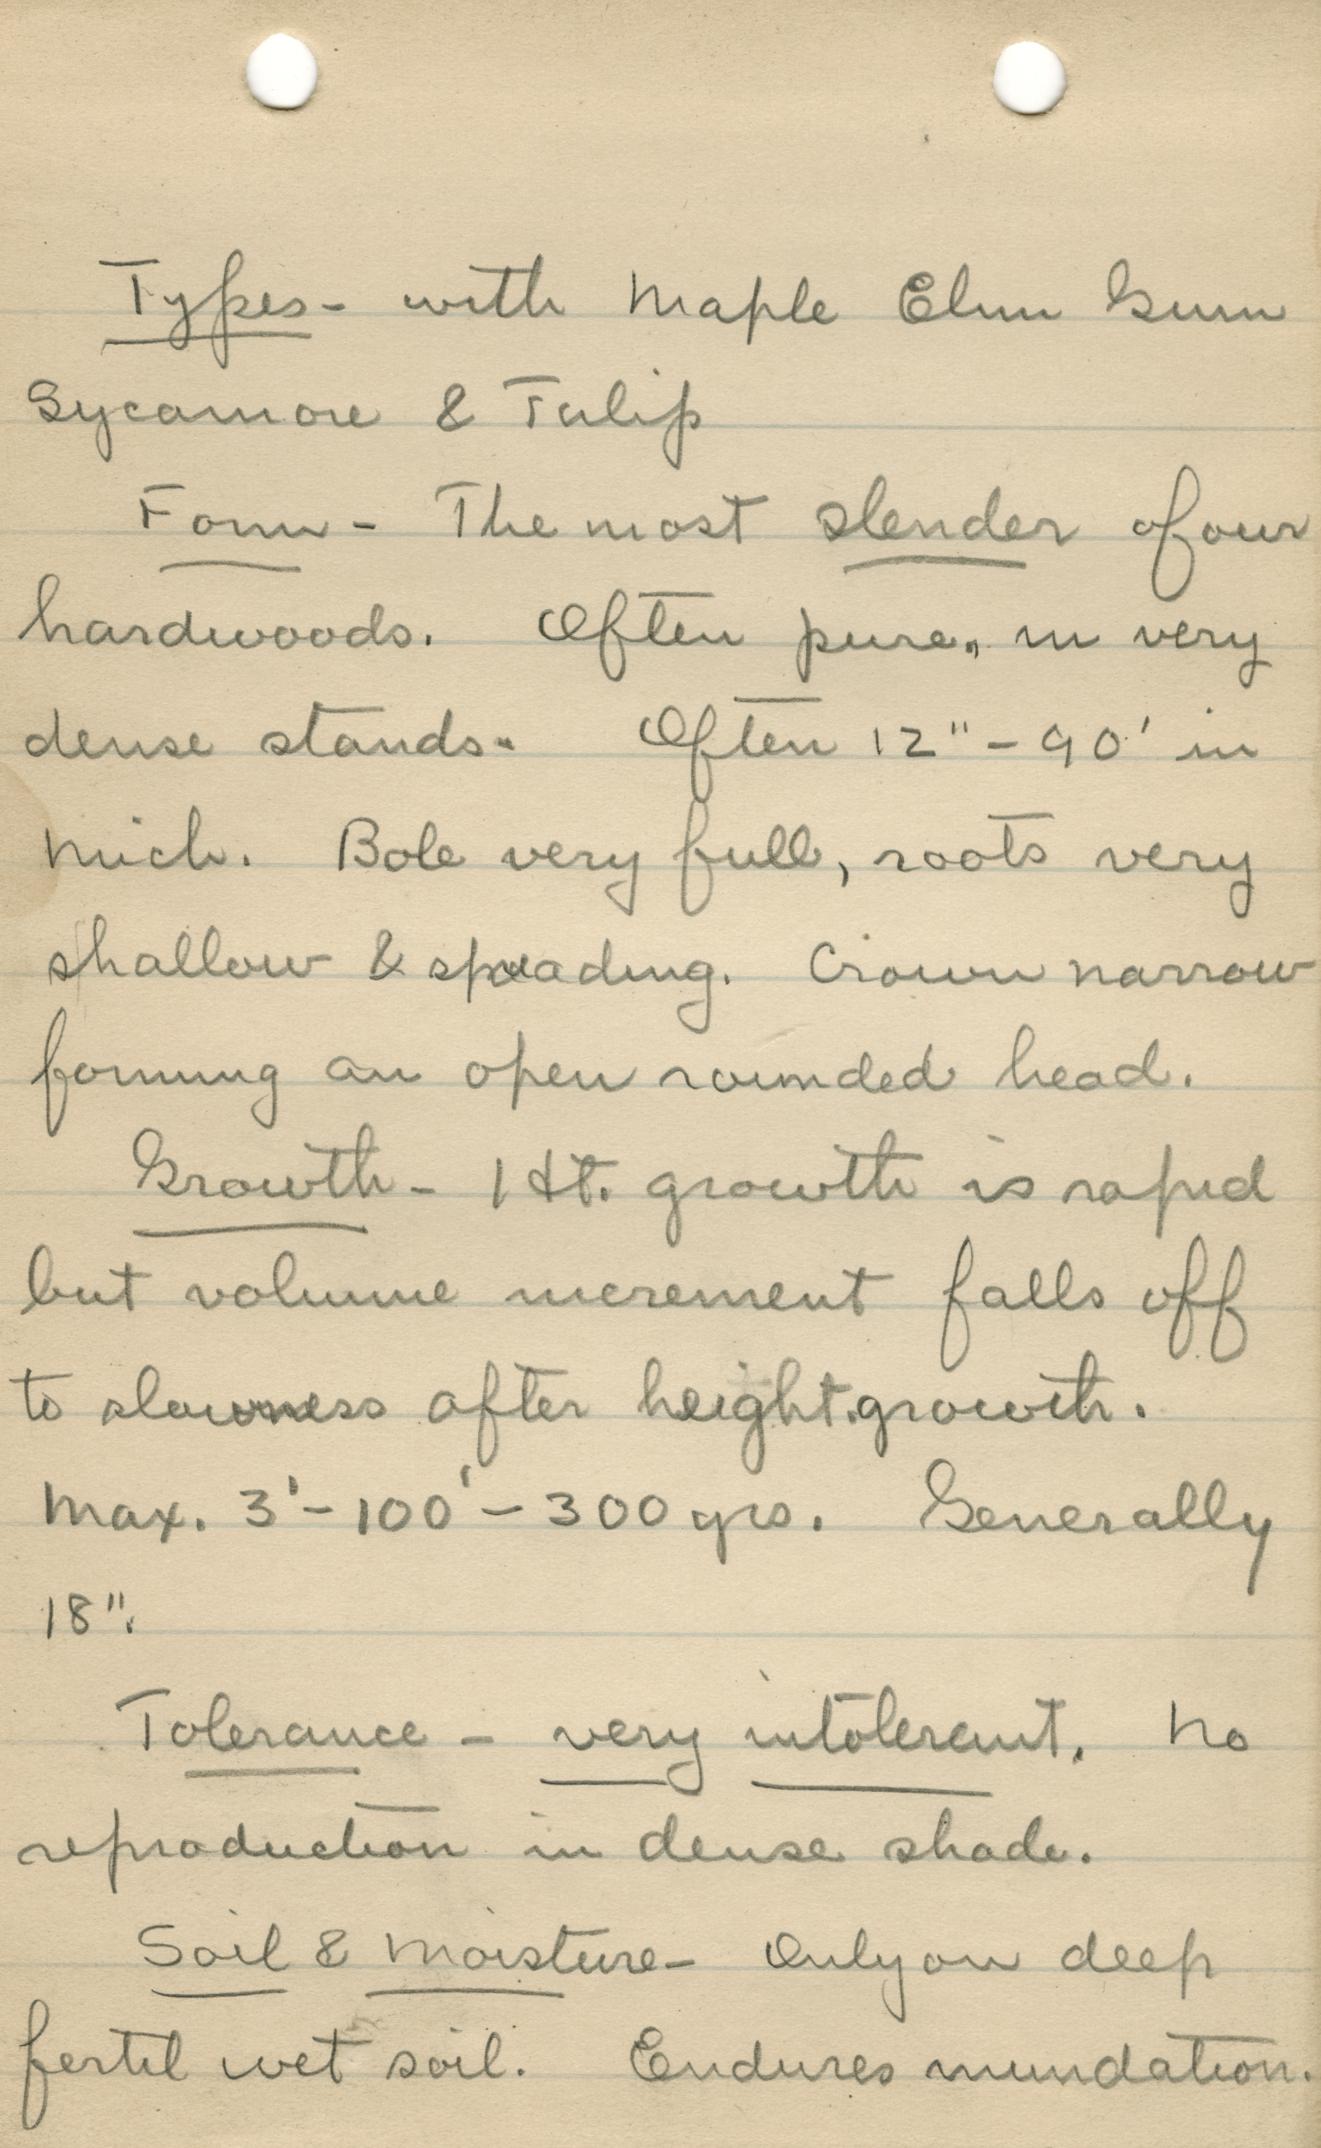 Types - with Maple Elm Gum
Sycamore & Tulip
Form - The most slender of our
hardwoods. Often pure, in very
dense stands. Often 12" - 90' in
Mich. Bole very full, roots very
shallow & spreading. Crown narrow
forming an open rounded head.
Growth - Ht. growth is rapid
but volume increment falls off
to slowness after height growth.
Max. 3' - 100' - 300 yrs. Generally
18".
Tolerance - very intolerant. No
reproduction in dense shade.
Soil & Moisture - Only on deep
fertil wet soil. Endures inundation.